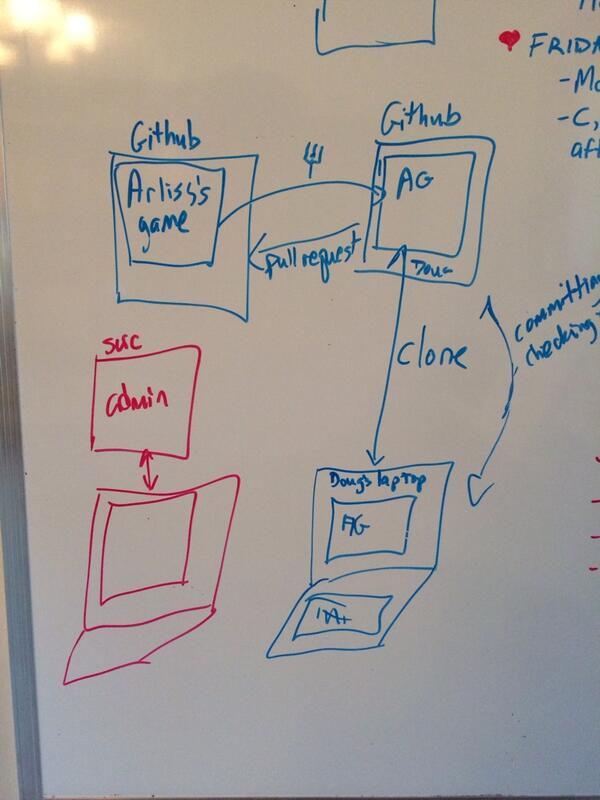 FRIDA
- Mo
- C,
aft
Github
Arliss's
game
Github
AG
Doug
pull request
clone
committing
checking
svc
admin
Doug's laptop
AG